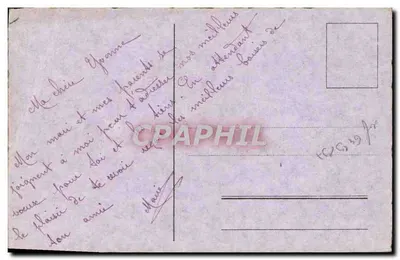 Ma chère Yvonne
Mon mari et mes parents se
joignent à moi pour t'adresser nos meilleurs
voeux pour toi et les tiens. En attendant
le plaisir de te revoir reçois les meilleurs baisers de
ton amie
Marie
CPARHIL